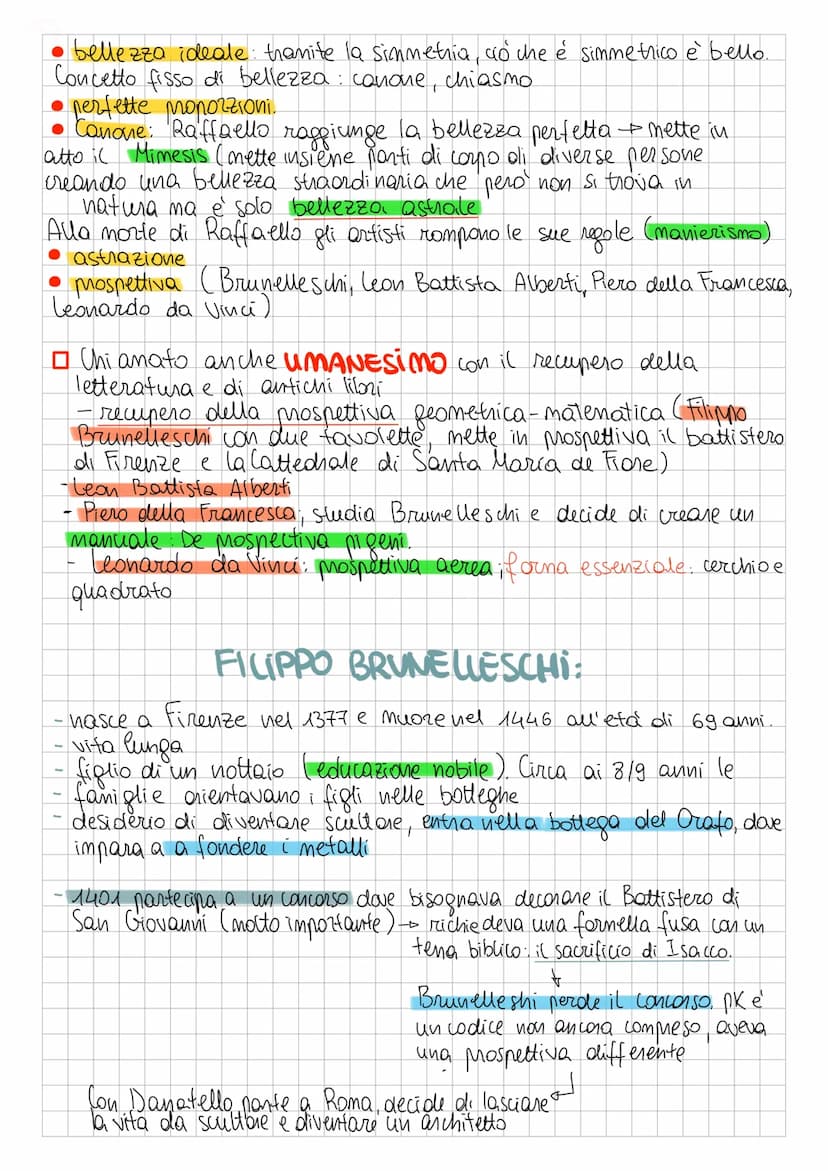 • bellezza ideale: tramite la simmetria, ciò che é simmetrico e' bello.
Concetto fisso di bellezza: canone, chiasmo
• perfette proporzioni.
• Canone: Raffaello raggiunge la bellezza perfetta → mette in
atto il Mimesis (mette insieme parti di corpo di diverse persone
creando una bellezza straordinaria che pero' non si trova in
natura ma e' solo bellezza astrale
Alla morte di Raffaello gli artisti rompono le sue regole (manierismo)
• astrazione
• prospettiva (Brunelleschi, Leon Battista Alberti, Piero della Francesca,
Leonardo da Vinci)
□ Chiamato anche UMANESIMO con il recupero della
letteratura e di antichi libri
- recupero della prospettiva geometrica-matematica (Filippo
Brunelleschi con due tavolette, mette in prospettiva il battistero
di Firenze e la Cattedrale di Santa Maria de Fiore)
- Leon Battista Alberti
- Piero della Francesca; studia Brunelleschi e decide di creare un
manuale: De prospectiva pigeni.
- Leonardo da Vinci: prospettiva aerea; forma essenziale: cerchio e
quadrato
FILIPPO BRUNELLESCHI:
- nasce a Firenze nel 1377 e muore nel 1446 all'età di 69 anni.
- vita lunga
- figlio di un nottaio (educazione nobile). Circa ai 8/9 anni le
- famiglie orientavano i figli nelle botteghe
- desiderio di diventare scultore, entra nella bottega del Orafo, dove
impara a a fondere i metalli
- 1401 partecipa a un concorso dove bisognava decorare il Battistero di
San Giovanni (molto importante) → richiedeva una formella fusa con un
tema biblico: il sacrificio di Isacco.
Brunelleshi perde il concorso. pk e'
un codice non ancora compreso, aveva
una prospettiva differente
Con Donatello parte a Roma, decide di lasciare
la vita da scultore e diventare un architetto